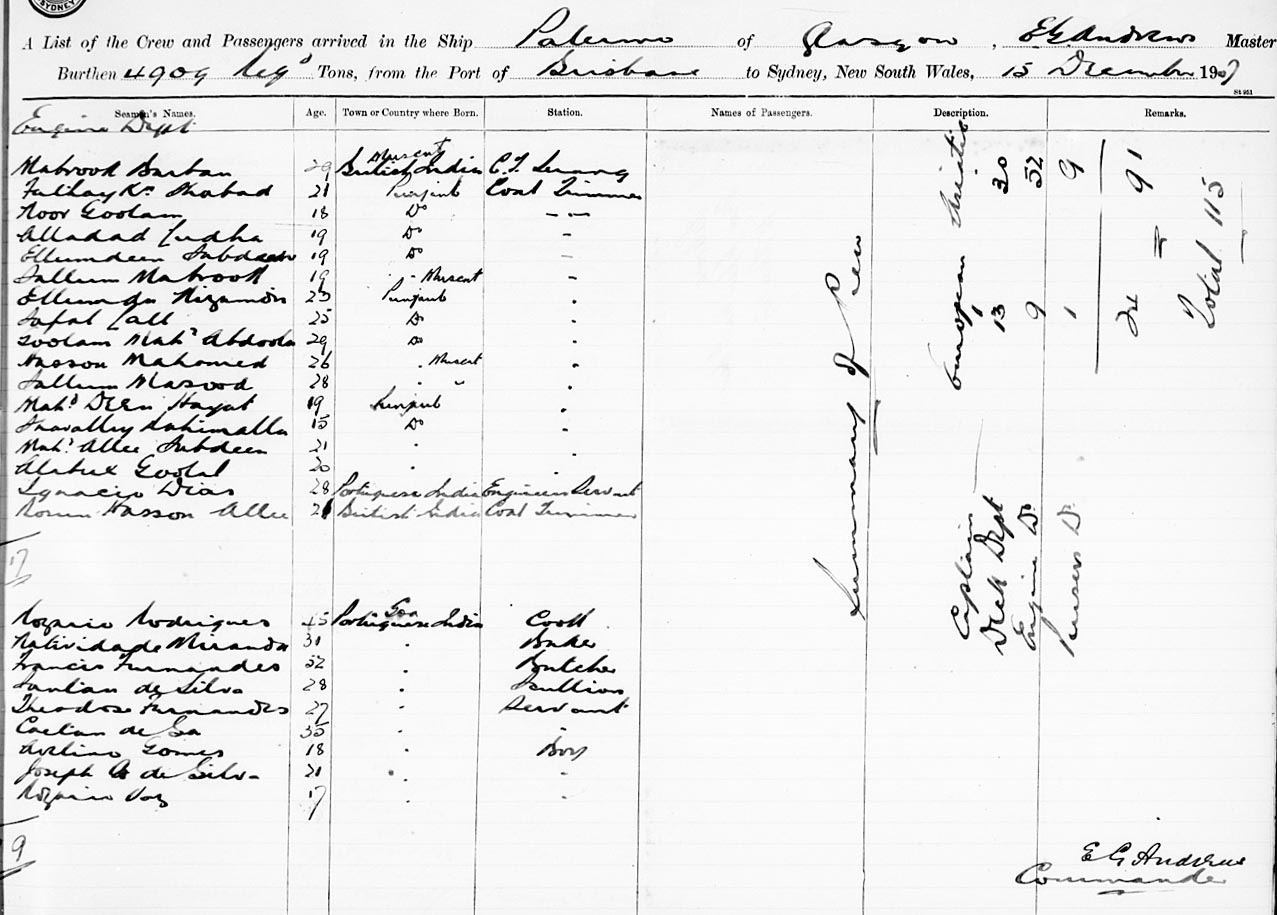 SYDNEY
A List of the Crew and Passengers arrived in the Ship Palermo of Glasgow, E G Andrews Master
Burthen 4909 Regd Tons, from the Port of Brisbane to Sydney, New South Wales, 15 December 1907
St 951
Seamen's Names. Age. Town or Country where Born. Station. Names of Passengers. Description. Remarks.
Engine Dept
Muscat
Mabrook Barhan 29 British India
21 Punjaub Coal Trimmer
Noor Goolam 18 Do — —
Alladad Ludha 19 Do -
Ellumdeen 19 Do -
Sallum Mabrook 19 - Muscat -
Nizamdin 23 Punjaub
Lall 25 Do
Goolam Mahd Abdoola 29 Do
Hasson Mahomed 26 Muscat
Sallum Masood 28 "
Mahd Deen Hayat 19 Punjaub
15 Do
Mahd Allee Subdeen 21
20
Ignacio Dias 28 Portuguese India Engineers Servant
Hasson Allee 21 British India Coal Trimmer
17
Goa
Rozario Rodrigues 45 Portuguese India Cook
Natividade Miranda 31 Baker
Francis Furnandes 32 Butcher
de Silva 28 Scullion
Theodose Fernandes 27 Servant
Caetan de Sa 35 -
Avelino Gomes 18 Boy
Joseph de Silva 21 -
Rozario Vaz 17 -
9
Summary of Crew
European Asiatic
Captain
Deck Dept 13 30
Engine Do 9 52
Pursers Do 1 9
24 = 91
Total 115
E G Andrews
Commander